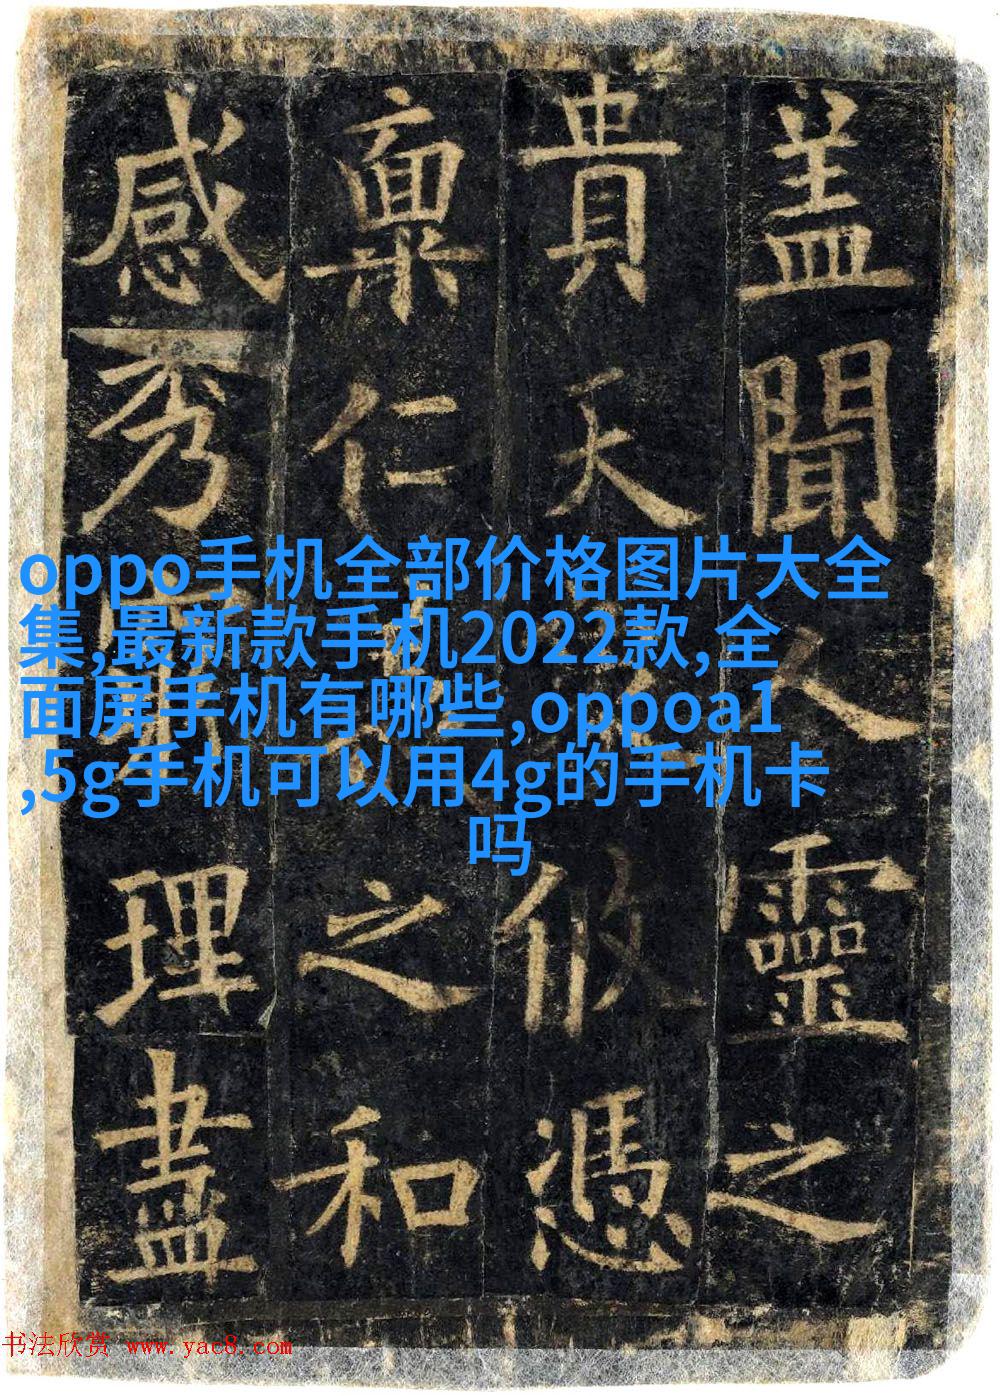 盖聞人靈之
貴天攸憑
稟仁之和
感秀理盡
oppo手机全部价格图片大全
集,最新款手机2022款,全
面屏手机有哪些,oppoa1
,5g手机可以用4g的手机卡
吗
书法欣赏 www.yac8.com